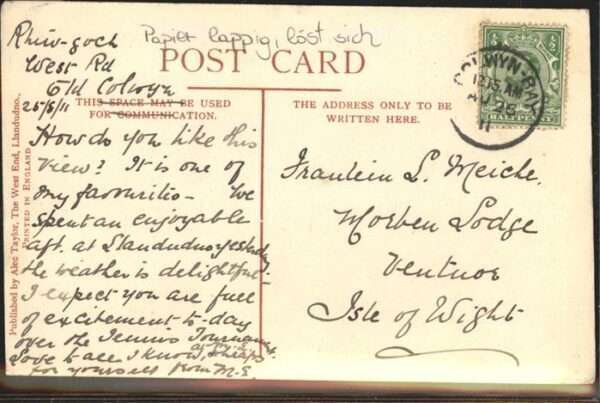 Rhiw-goch
West Rd
Old Colwyn
25/8/11
Papier lappig, löst sich
POST CARD
THIS SPACE MAY BE USED
FOR COMMUNICATION.
How do you like this
view? It is one of
my favourites - We
spent an enjoyable
aft. at Llandudno yesterday
the weather is delightful -
I expect you are full
of excitement to-day
over the Tennis Tournament.
Love to all I know, & heaps
for yourself from M.E.
THE ADDRESS ONLY TO BE
WRITTEN HERE.
Fraulein L. Meiche.
Morben Lodge
Ventnor
Isle of Wight
COLWYN-BAY
12.15 AM
AU 26
11
HALFPENNY
Published by Alec Taylor, The West End, Llandudno.
PRINTED IN ENGLAND